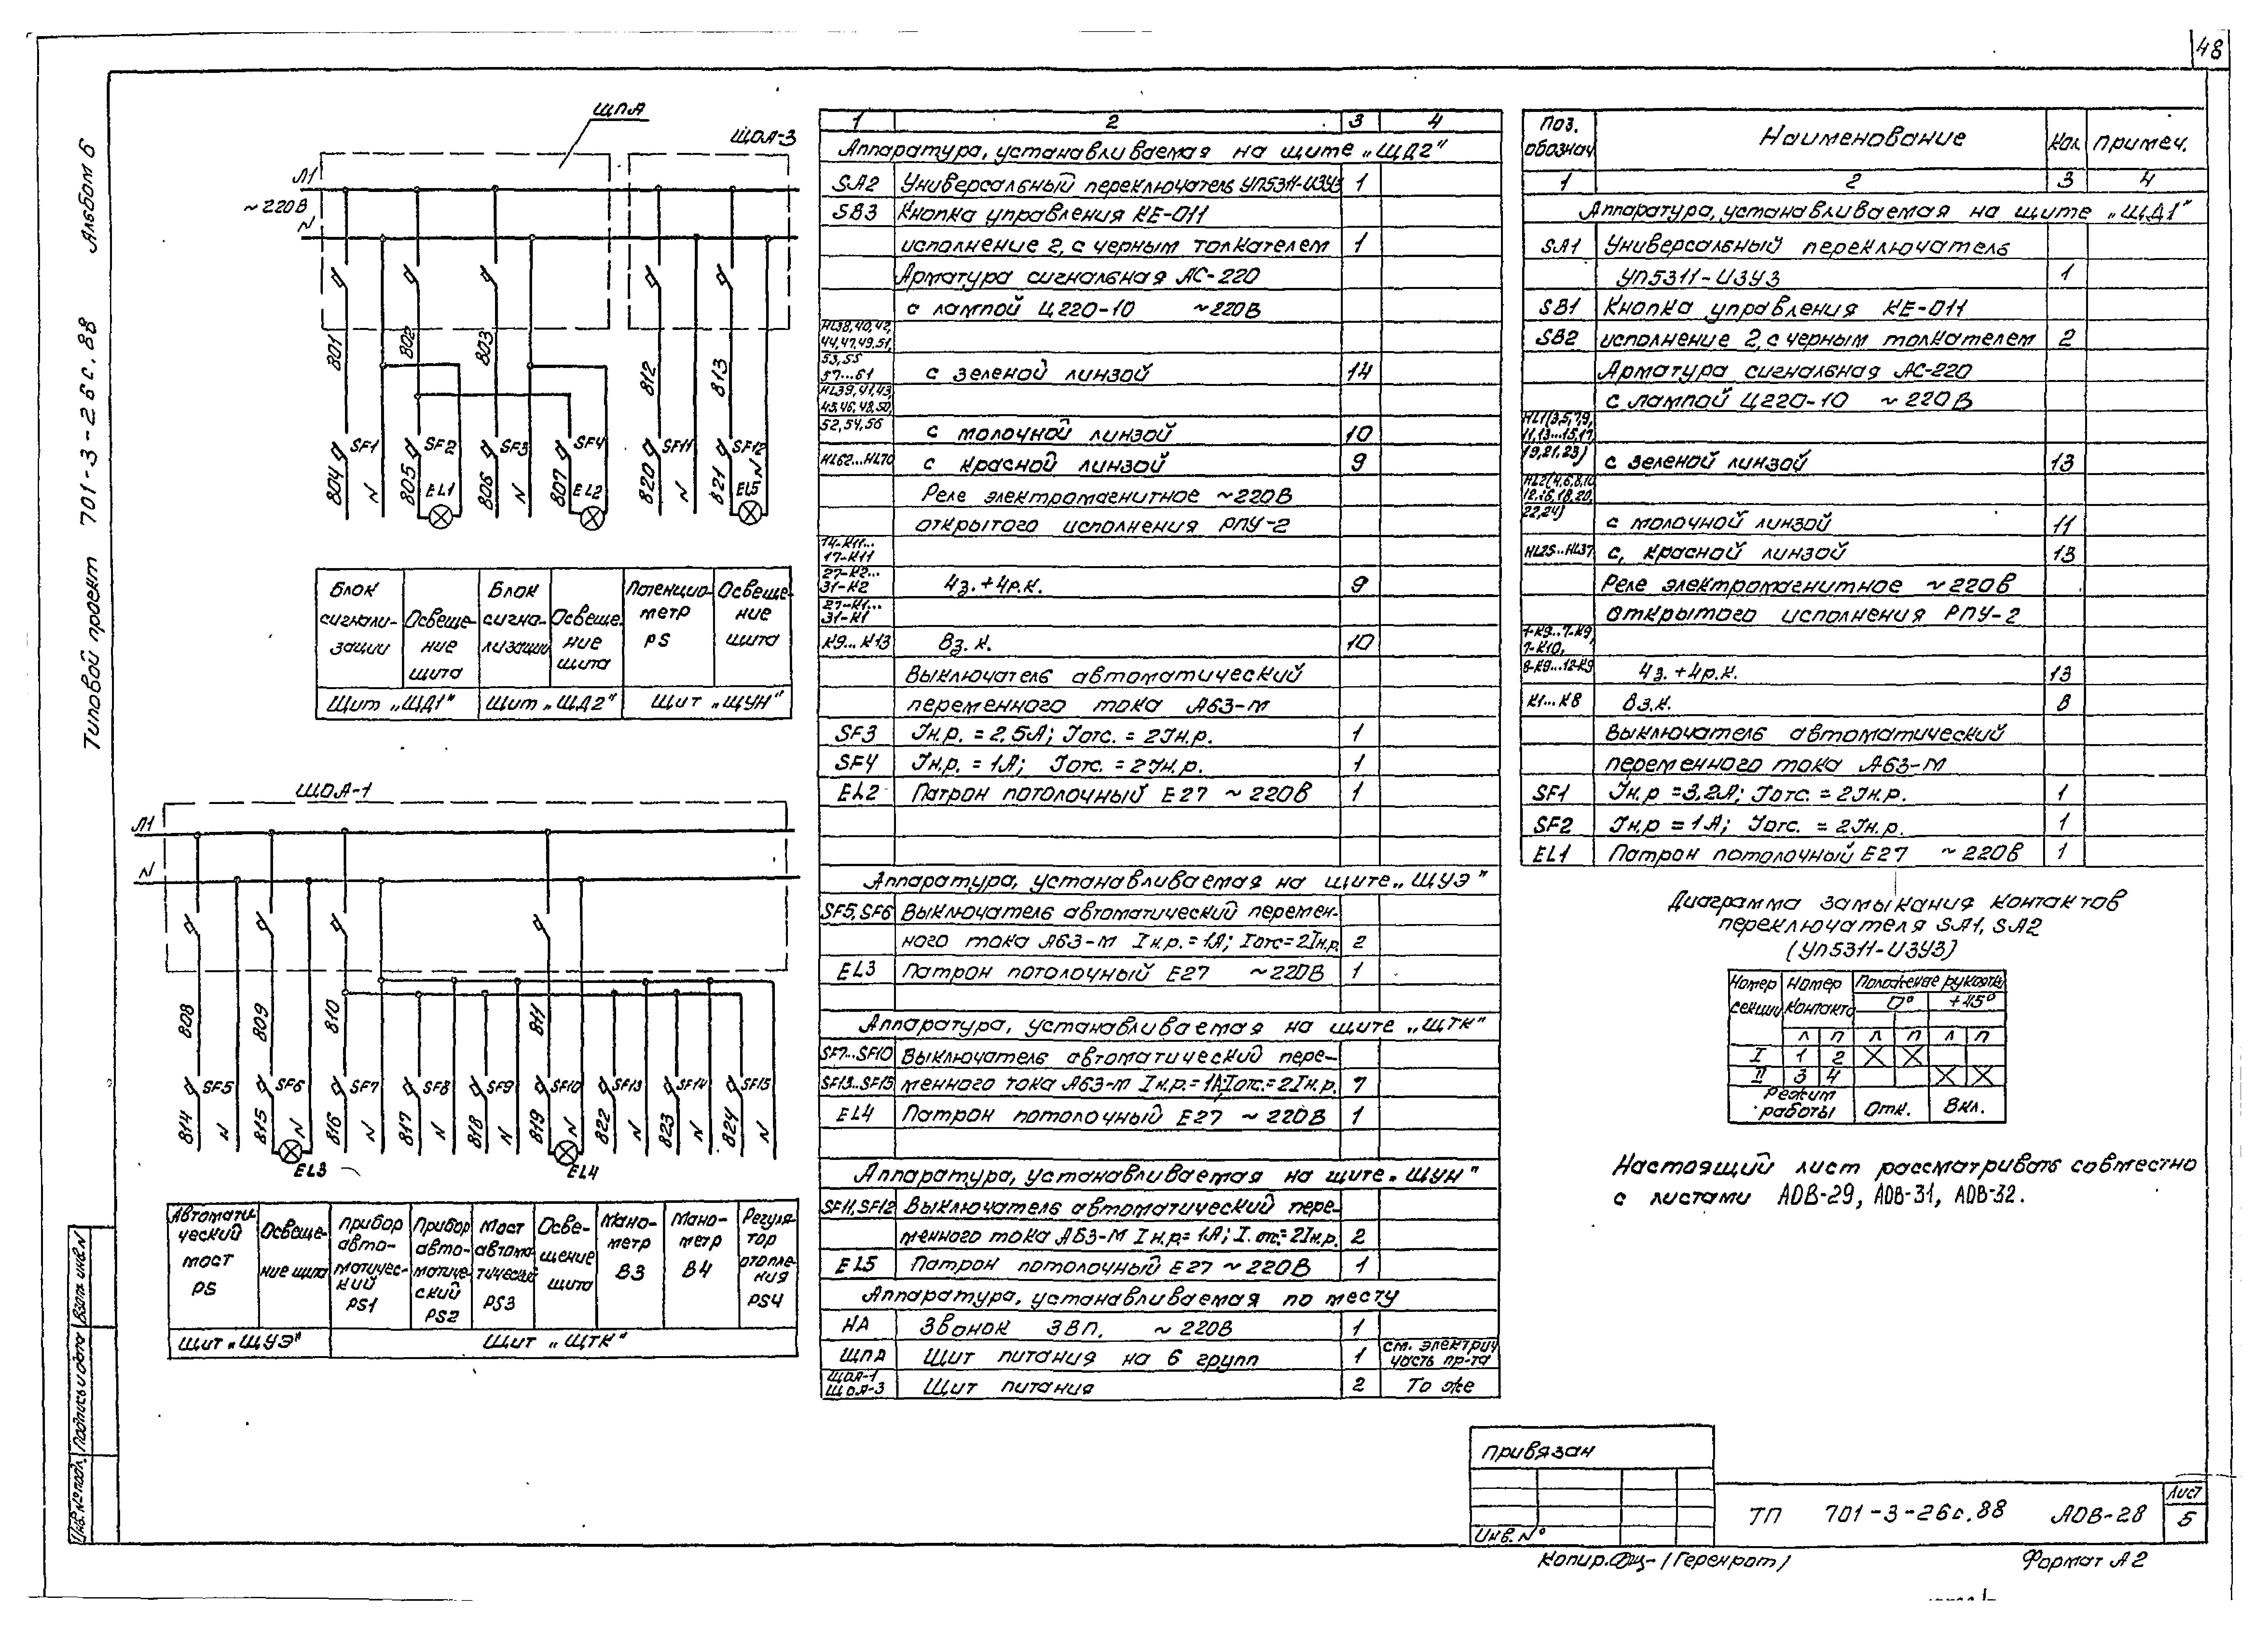 48
Альбом 6
Типовой проект 701-3-26с.88
ЩПА
ЩОА-3
Л1
~220В
N
801
802
803
812
813
SF1
SF2
SF3
SF4
SF11
SF12
804
N
805
EL1
806
N
807
EL2
820
N
821
EL5
N
Блок сигнали-зации
Освеще-ние щита
Блок сигна-лизации
Освеще-ние щита
Потенцио-метр PS
Освеще-ние щита
Щит „ЩД1"
Щит „ЩД2"
Щит „ЩУН"
ЩОА-1
Л1
N
808
809
810
811
SF5
SF6
SF7
SF8
SF9
SF10
SF13
SF14
SF15
814
N
815
N
816
N
817
N
818
N
819
N
822
N
823
N
824
N
EL3
EL4
Автомати-ческий мост PS
Освеще-ние щита
Прибор авто-матичес-кий PS1
Прибор авто-матиче-ский PS2
Мост автома-тический PS3
Осве-щение щита
Мано-метр В3
Мано-метр В4
Регуля-тор отопле-ния PS4
Щит „ЩУЭ"
Щит „ЩТК"
1 2 3 4
Аппаратура, устанавливаемая на щите „ЩД2"
SA2 Универсальный переключатель УП5311-И3У3 1
SB3 Кнопка управления КЕ-011
исполнение 2, с черным толкателем 1
Арматура сигнальная АС-220
с лампой Ц220-10 ~220В
HL38,40,42,
44,47,49,51,
53,55
57...61 с зеленой линзой 14
HL39,41,43,
45,46,48,50,
52,54,56 с молочной линзой 10
HL62...HL70 с красной линзой 9
Реле электромагнитное ~220В
открытого исполнения РПУ-2
14-К11...
17-К11
27-К2...
31-К2 4з.+4р.к. 9
27-К1...
31-К1
К9...К13 8з.к. 10
Выключатель автоматический
переменного тока А63-М
SF3 Iн.р. = 2,5А; Iотс. = 2Iн.р. 1
SF4 Iн.р. = 1А; Iотс. = 2Iн.р. 1
EL2 Патрон потолочный Е27 ~220В 1
Аппаратура, устанавливаемая на щите „ЩУЭ"
SF5, SF6 Выключатель автоматический перемен-
ного тока А63-М Iн.р. = 1А; Iотс = 2Iн.р. 2
EL3 Патрон потолочный Е27 ~220В 1
Аппаратура, устанавливаемая на щите „ЩТК"
SF7...SF10 Выключатель автоматический пере-
SF13...SF15 менного тока А63-М Iн.р. = 1А; Iотс. = 2Iн.р. 7
EL4 Патрон потолочный Е27 ~220В 1
Аппаратура, устанавливаемая на щите „ЩУН"
SF11, SF12 Выключатель автоматический пере-
менного тока А63-М Iн.р = 1А; I.отс. = 2Iн.р. 2
EL5 Патрон потолочный Е27 ~220В 1
Аппаратура, устанавливаемая по месту
НА Звонок ЗВП. ~220В 1
ЩПА Щит питания на 6 групп 1 см. электрич часть пр-та
ЩОА-1
ЩОА-3 Щит питания 2 То же
Поз. обознач Наименование Кол. Примеч.
1 2 3 4
Аппаратура, устанавливаемая на щите „ЩД1"
SA1 Универсальный переключатель
УП5311-И3У3 1
SB1 Кнопка управления КЕ-011
SB2 исполнение 2, с черным толкателем 2
Арматура сигнальная АС-220
с лампой Ц220-10 ~220В
HL1(3,5,7,9,
11,13...15,17,
19,21,23) с зеленой линзой 13
HL2(4,6,8,10
12,16,18,20,
22,24) с молочной линзой 11
HL25...HL37 с красной линзой 13
Реле электромагнитное ~220В
открытого исполнения РПУ-2
1-К9...7-К9,
7-К10,
8-К9...12-К9 4з.+4р.к. 13
К1...К8 8з.к. 8
Выключатель автоматический
переменного тока А63-М
SF1 Iн.р = 3,2А; Iотс. = 2Iн.р. 1
SF2 Iн.р = 1А; Iотс. = 2Iн.р. 1
EL1 Патрон потолочный Е27 ~220В 1
Диаграмма замыкания контактов
переключателя SA1, SA2
(УП5311-И3У3)
Номер секции Номер контакта Положение рукоятки
0° +45°
Л П Л П Л П
I 1 2 X X
II 3 4 X X
Режим работы Отк. Вкл.
Настоящий лист рассматривать совместно
с листами АОВ-29, АОВ-31, АОВ-32.
Инв.№подл. Подпись и дата Взам. инв.N
Привязан
Инв.N°
ТП 701-3-26с.88 АОВ-28
Лист
5
Формат А2